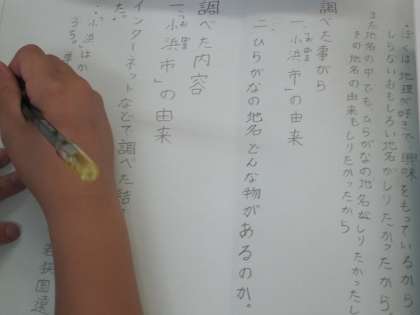 ぼくは地理が好きで興味をもっているから。
しらないおもしろい地名がしりたかったから。
また地名の中でも、ひらがなの地名がしりたかったし
その地名の由来もしりたかったから
調べた事がら
一、「小浜市」の由来
二、ひらがなの地名どんな物があるのか。
調べた内容
一、「小浜市」の由来
インターネットなどで調べた結
た。
「小浜」はか
若狭国